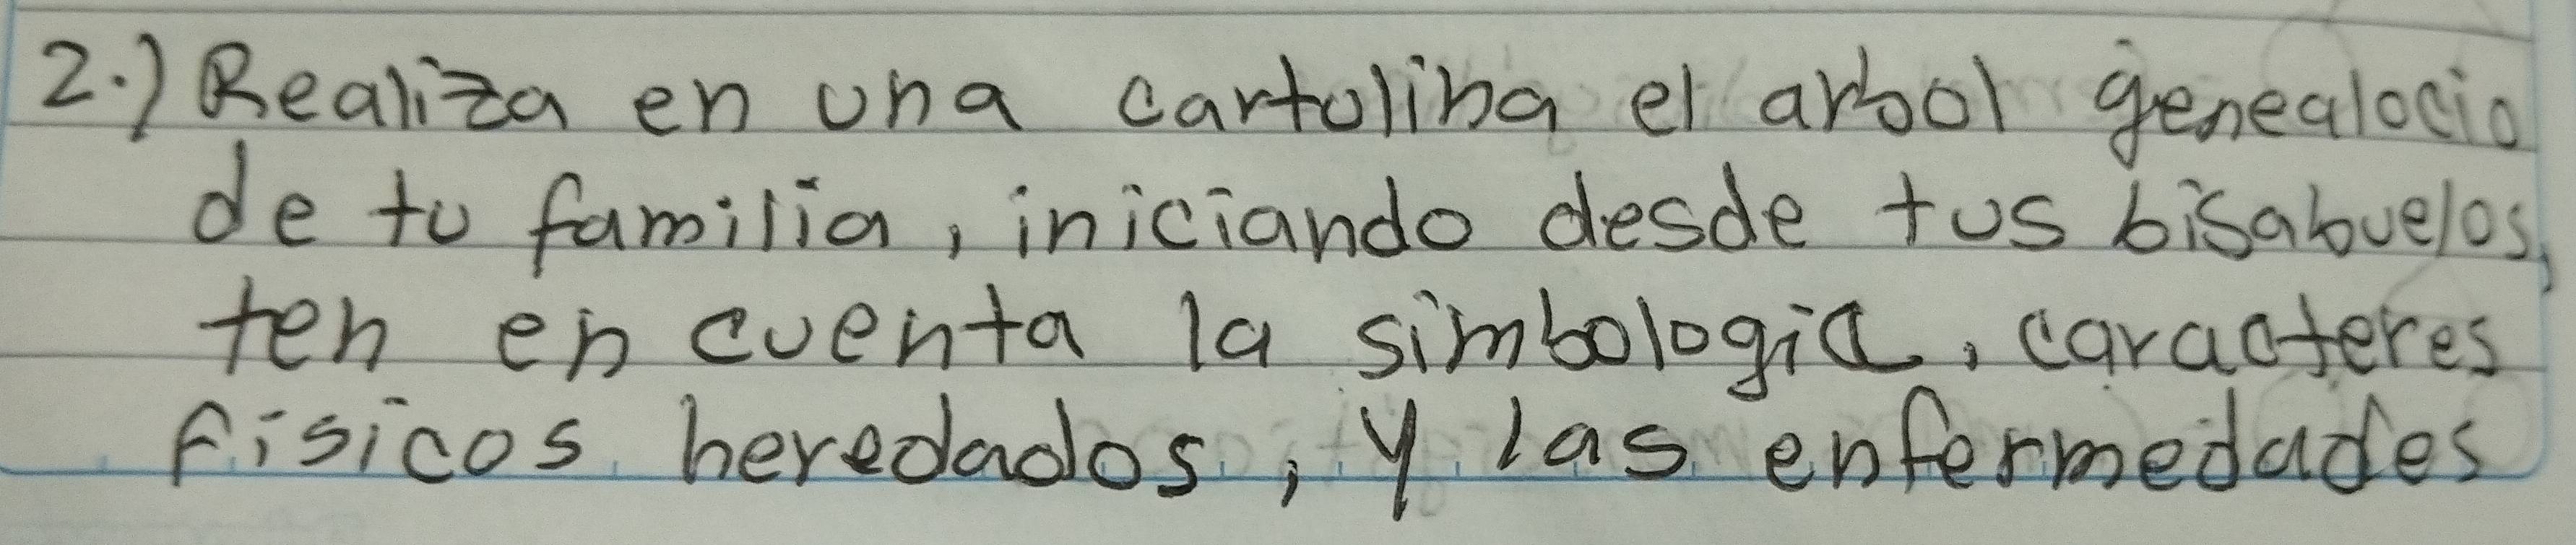 2.) Realiza en una cartolina el arbol genealocio
de tu familia, iniciando desde tus bisabuelos,
ten en cuenta la simbologia, caracteres
Fisicos heredados, y las enfermedades